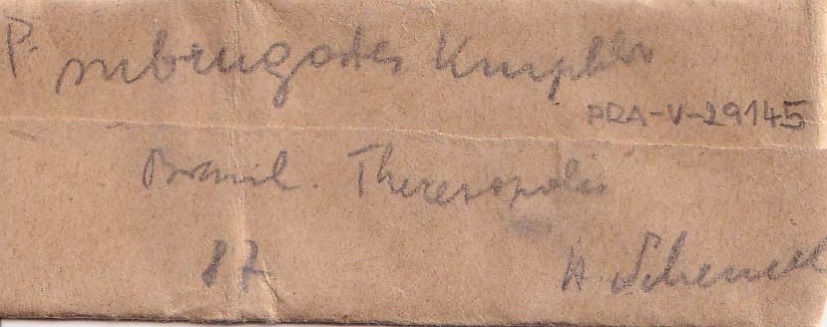 P. rubrugosus Krempelh
PRA-V-29145
Brasil. Theresopolis
87
H. Schenck